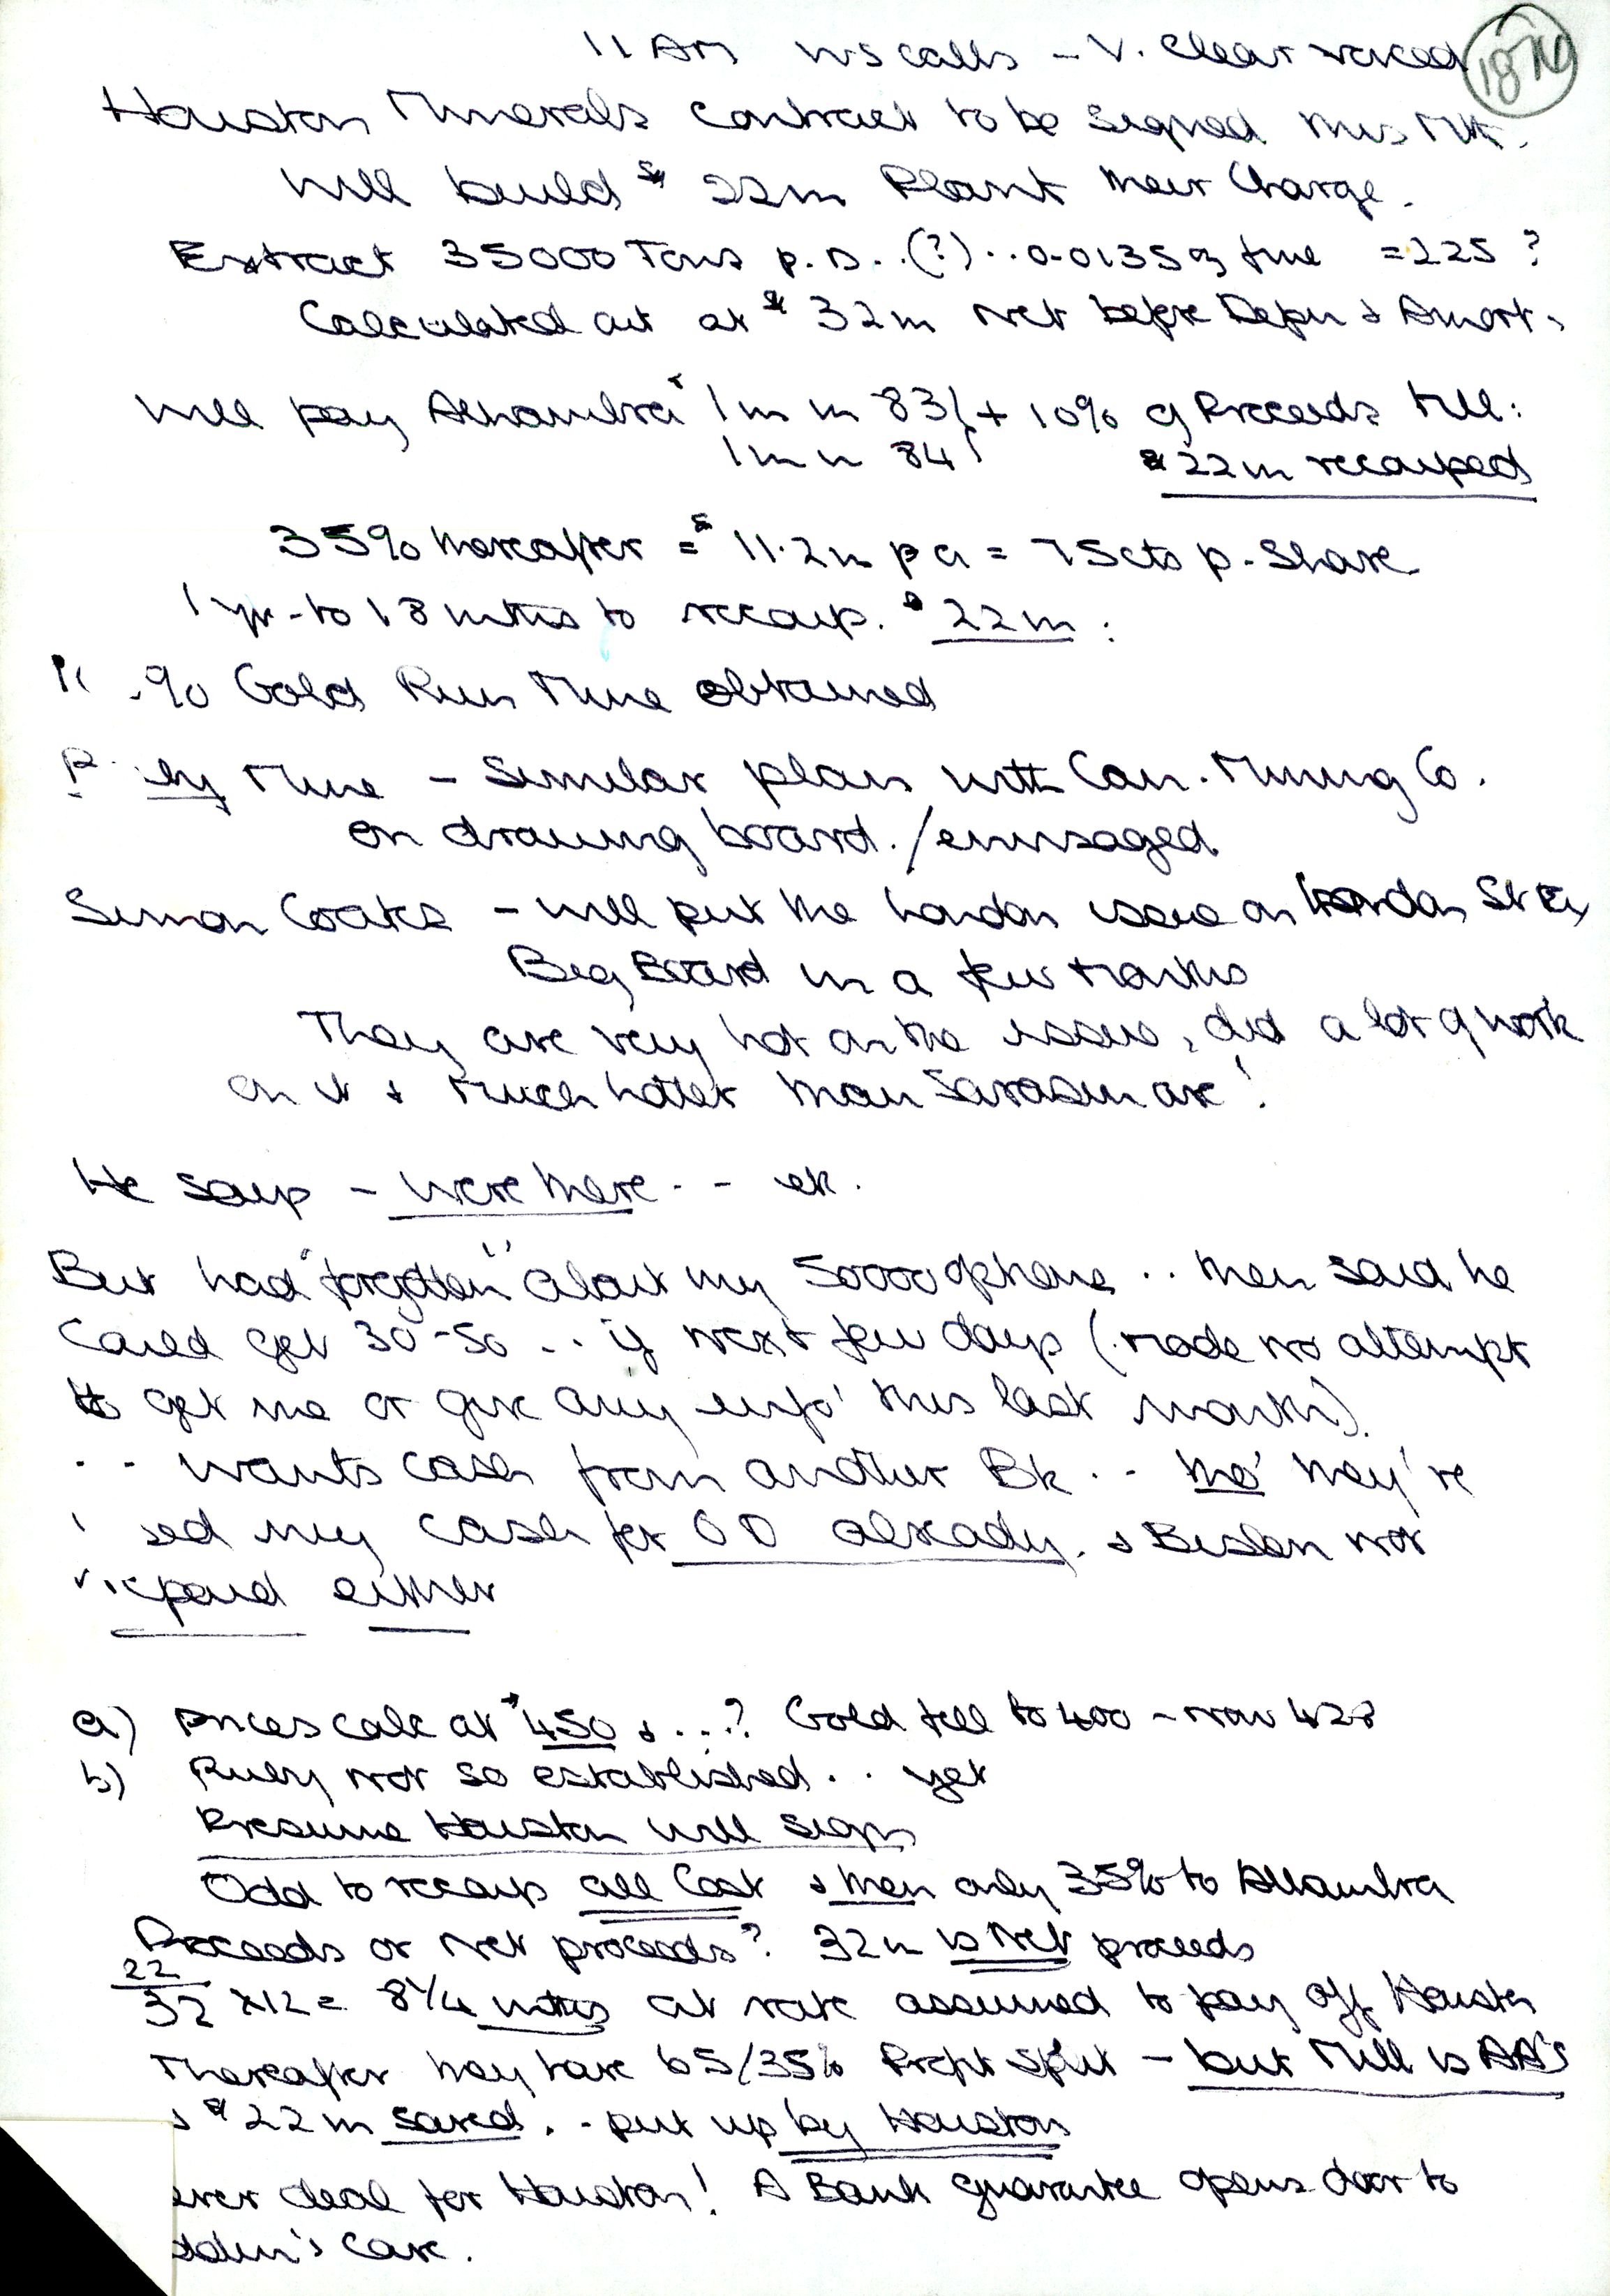 11 AM WS calls - V. Clear voiced
Houston Minerals Contract to be signed this Mth.
Will build $ 22m Plant their Charge.
Extract 35000 Tons p.D..(?)..0.0135 oz fine = 225 ?
Calculated out at $ 32m Net before Depn & Amort.
Will pay Alhambra $ 1m in 83 } + 10% of Proceeds till:
1m in 84 } $ 22m recouped
35% thereafter = $ 11.2m p a = 75cts p. Share
1 yr - to 18 mths to recoup. $ 22m :
% Gold Run Mine obtained
Mine - Similar plan with Can. Mining Co.
on drawing board. / envisaged
Simon Coates - will put the London issue on London St Ex
Big Board in a few months
They are very hot on the issue, did a lot of work
on it & much hotter than Sarasin are!
He says - we're there - - etc.
But had "forgotten" about my 50000 options .. then said he
Could get 30-50 .. if next few days (made no attempt
to get me or give any info' this last month).
.. wants cash from another Bk .. tho' they're
my cash for OD already. & Beslan not
repaid either
a) Prices calc at $ 450 & ...? Gold fell to 400 - now 428
b) Ruby not so established .. yet
Presume Houston will sign
Odd to recoup all Cost & then only 35% to Alhambra
Proceeds or Net proceeds? 32m is Net proceeds
22/32 x12 = 8 1/4 mths at rate assumed to pay off Houston
Thereafter they have 65/35% Profit Split - but Mill is AA's
& $ 22m saved. - put up by Houston
deal for Houston! A Bank guarantee opens door to
Cave.